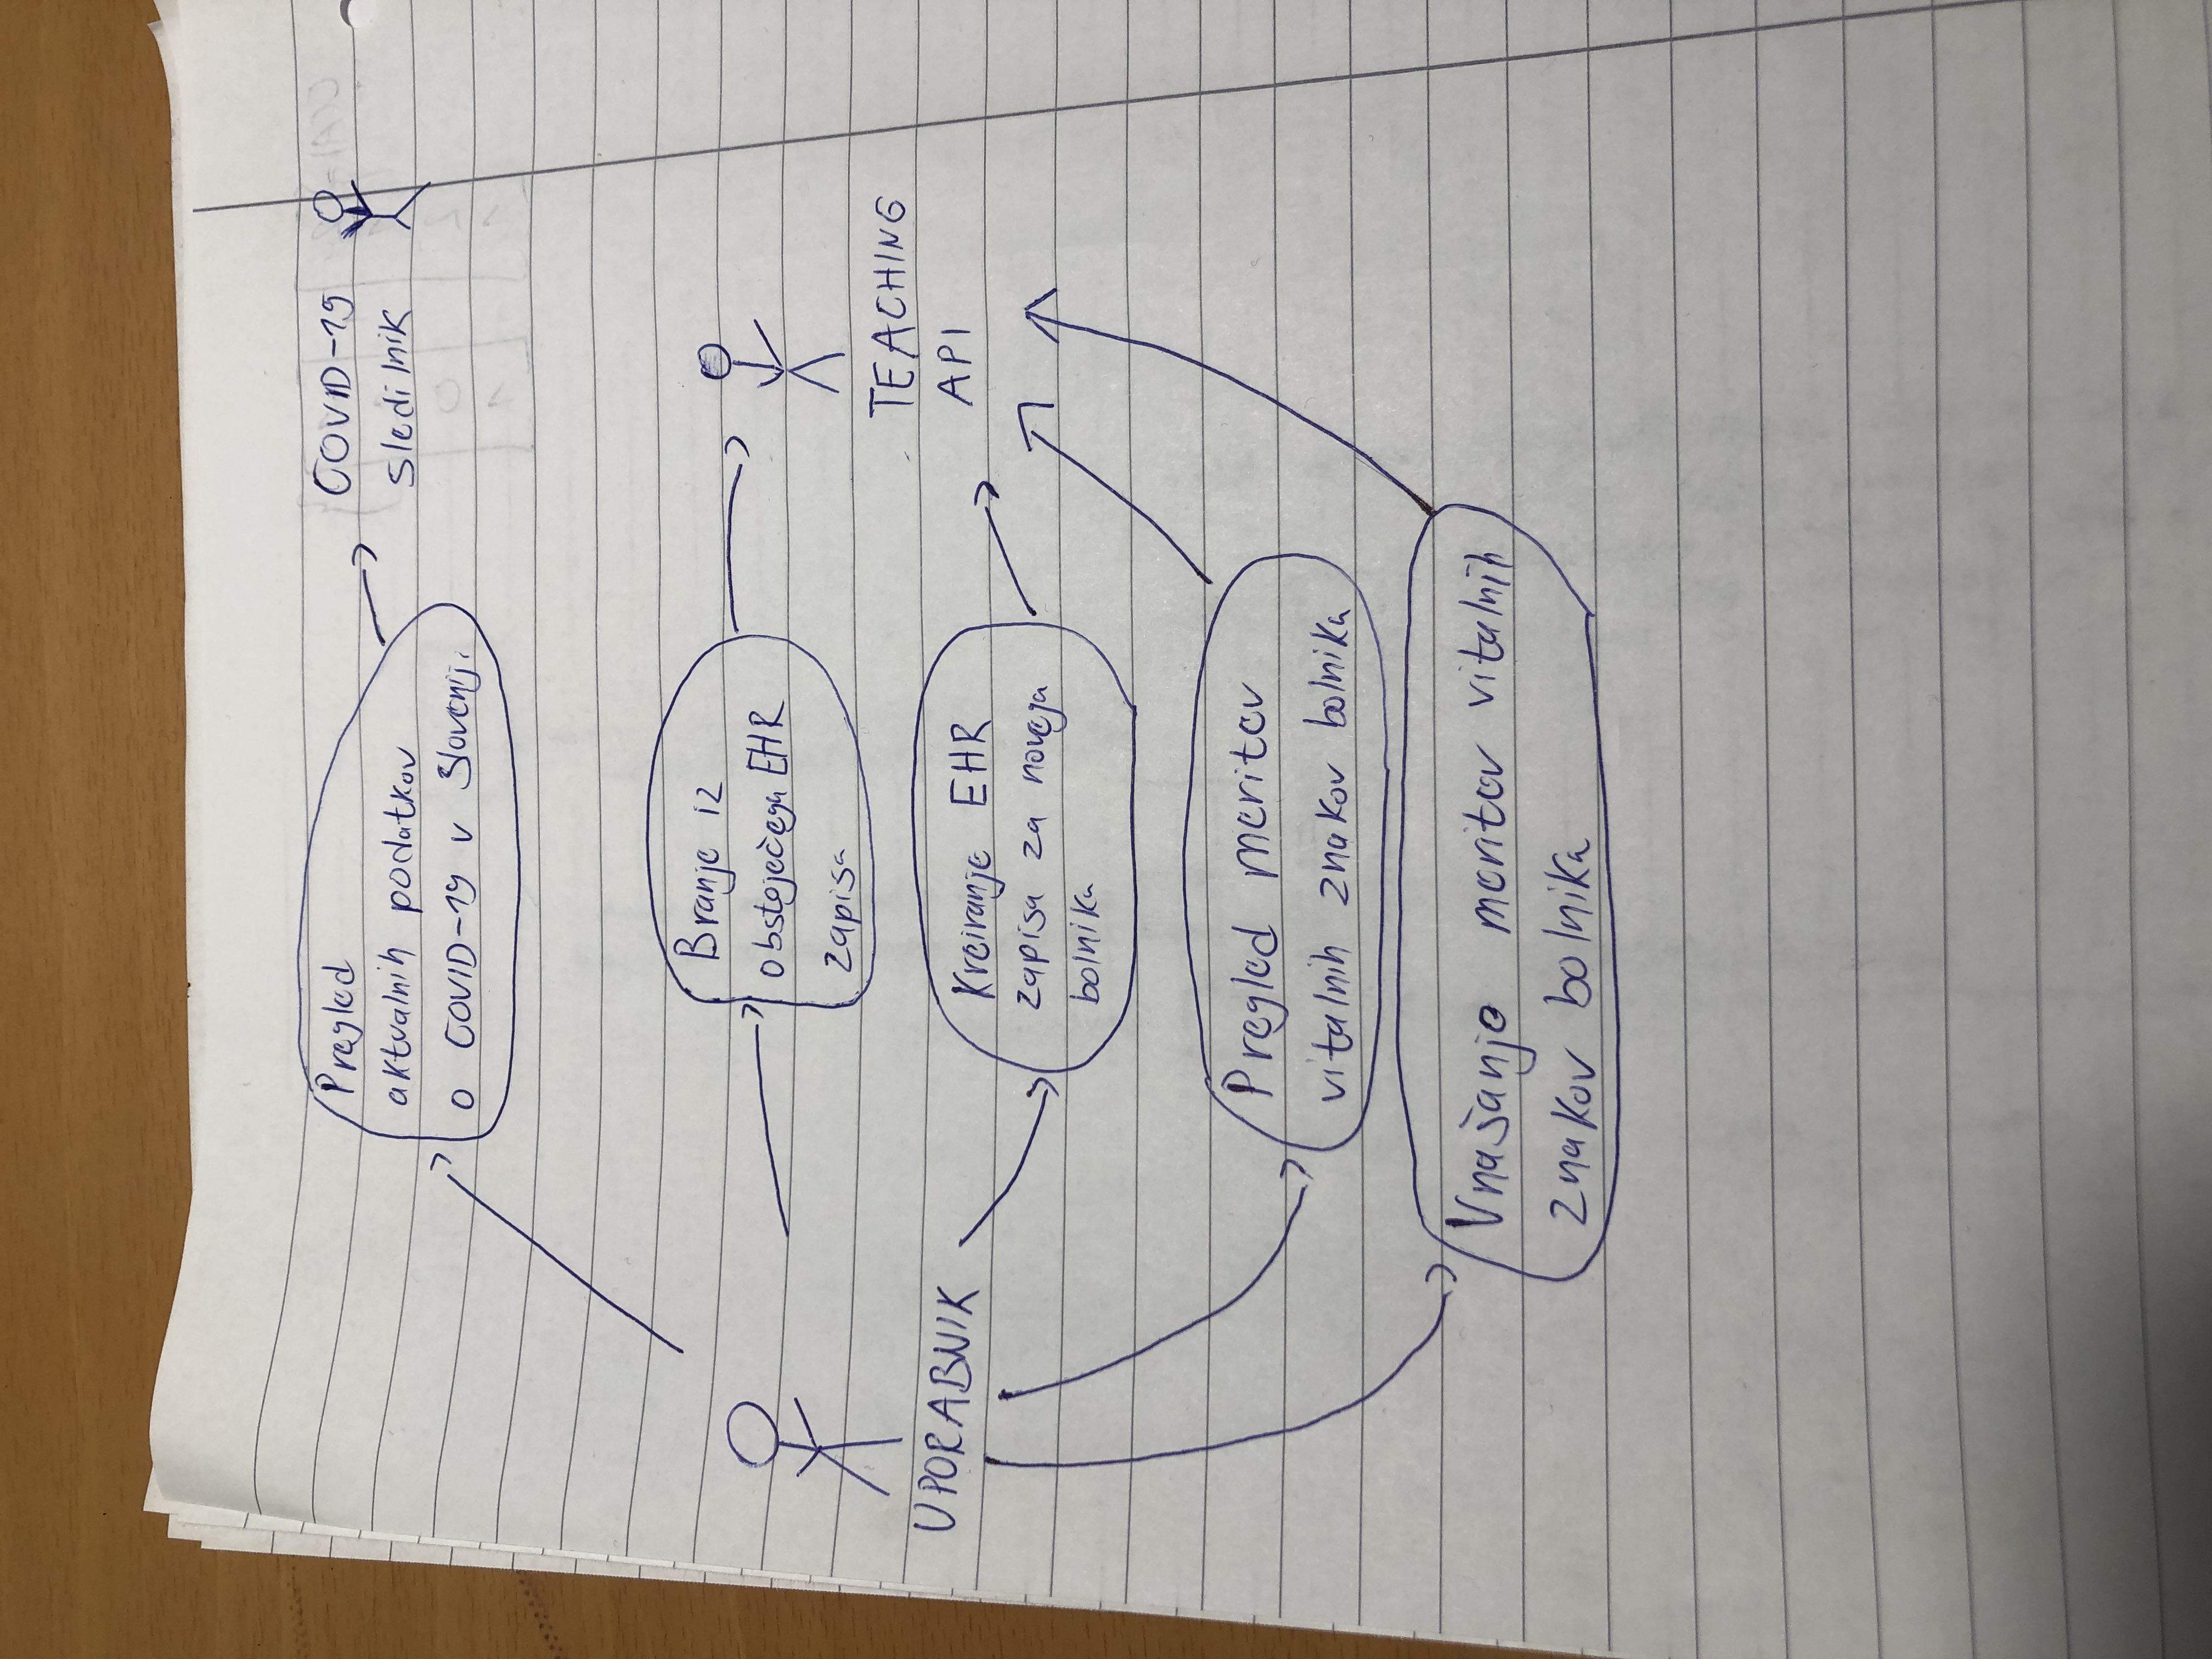 Pregled
aktualnih podatkov
o COVID-19 v Sloveniji
COVID-19
sledilnik
Branje iz
obstoječega EHR
zapisa
TEACHING
API
UPORABNIK
Kreiranje EHR
zapisa za novega
bolnika
Pregled meritev
vitalnih znakov bolnika
Vnašanje meritev vitalnih
znakov bolnika